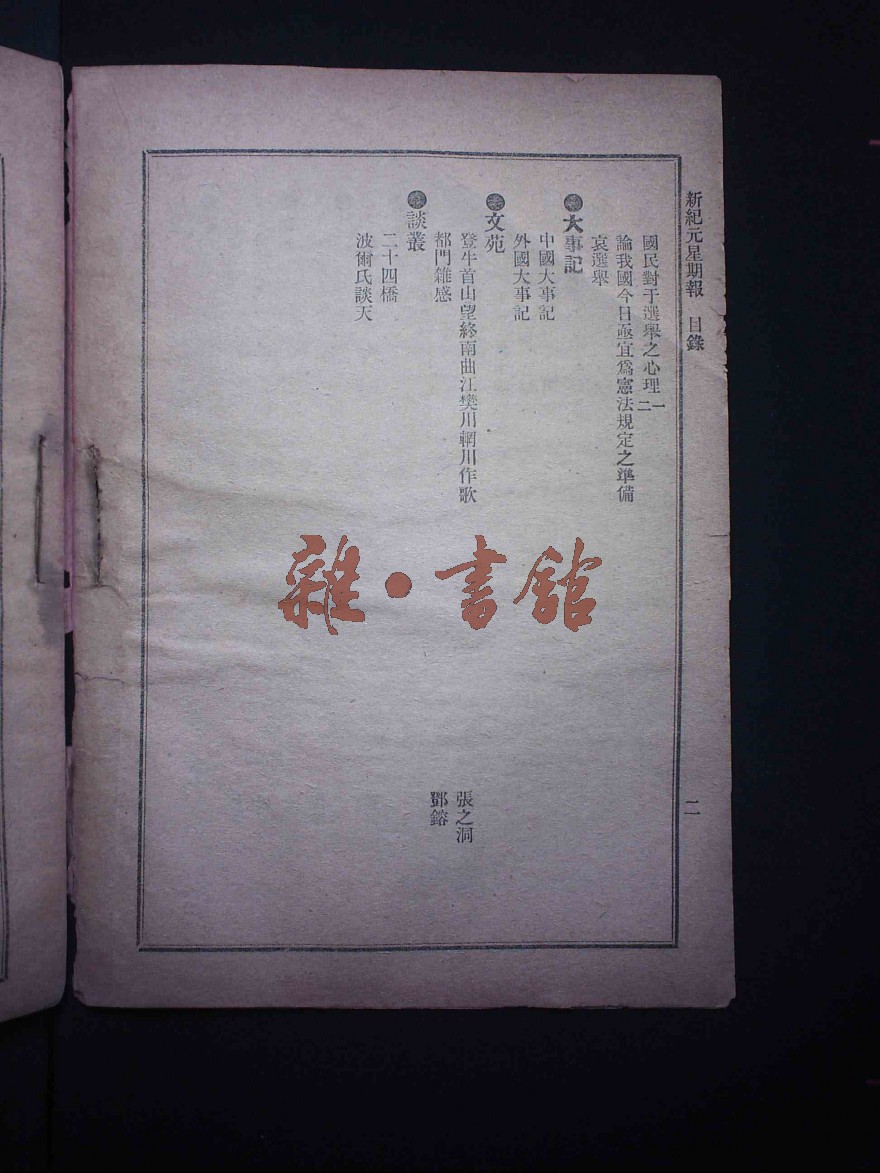 新紀元星期報 目錄 二
國民對于選舉之心理一二
論我國今日亟宜爲憲法規定之準備
哀選舉
大事記
中國大事記
外國大事記
文苑
登牛首山望終南曲江樊川輞川作歌 張之洞
都門雜感 鄧鎔
談叢
二十四橋
波爾氏談天
雜·書館